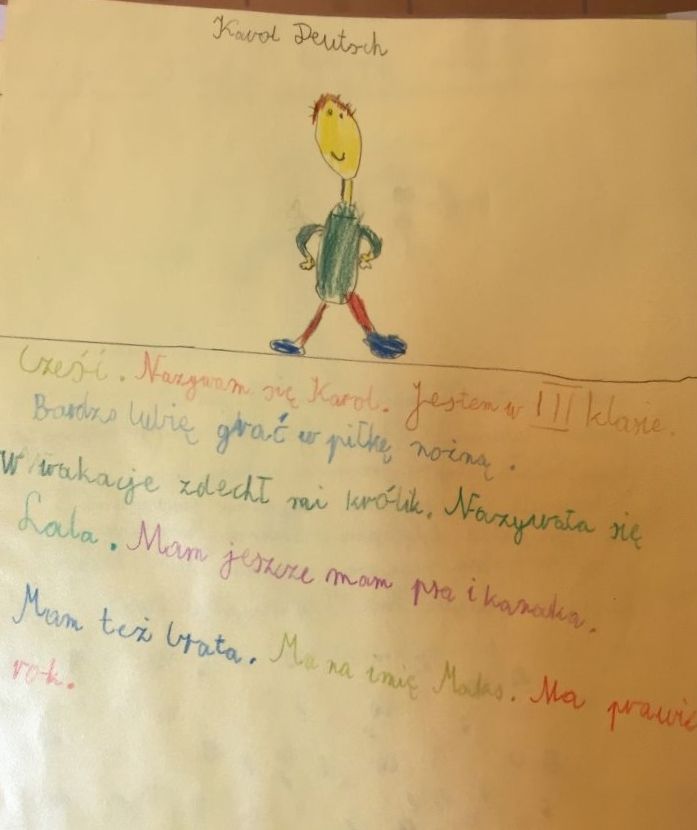 Karol Deutsch
Cześć. Nazywam się Karol. Jestem w III klasie.
Bardzo lubię grać w piłkę nożną.
W wakacje zdechł mi królik. Nazywała się
Lala. Mam jeszcze mam psa i kanaka.
Mam też brata. Ma na imię Maks. Ma prawie
rok.